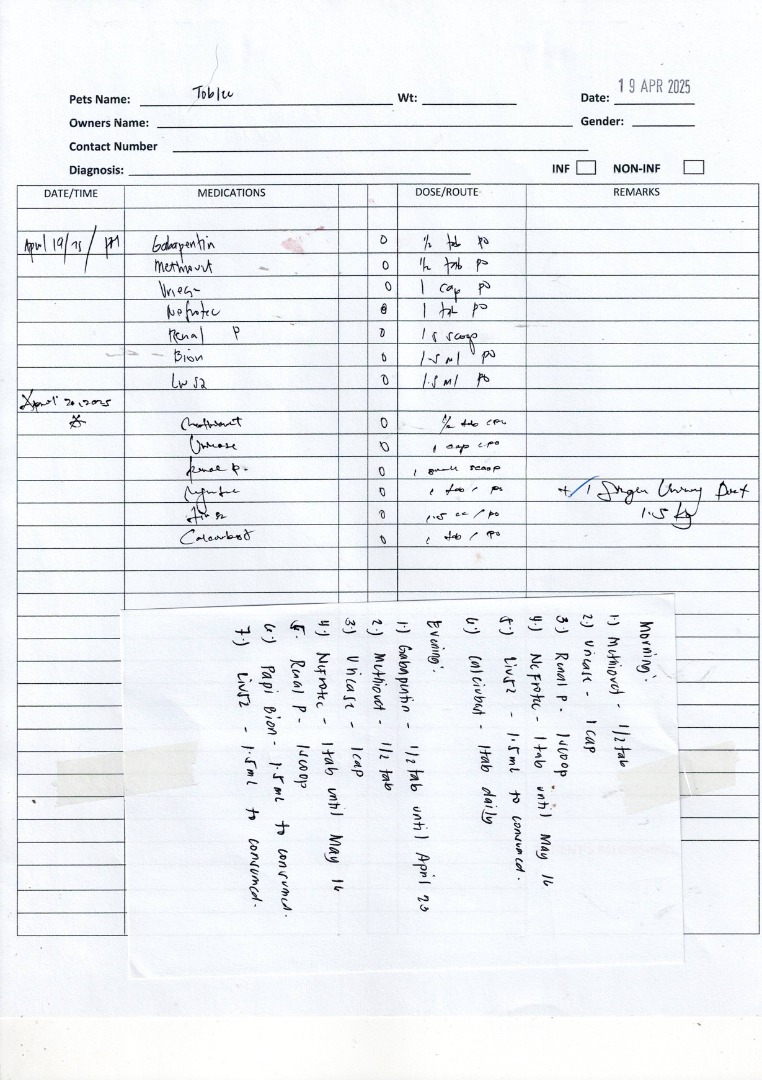 19 APR 2025
Pets Name: Wt: Date:
Owners Name: Gender:
Contact Number
Diagnosis: INF NON-INF
DATE/TIME MEDICATIONS DOSE/ROUTE REMARKS
April 19/25/ PM Gabapentin 0 1/2 tab po
Methiovet 0 1/2 tab po
0 1 cap po
Nefrotec 0 1 tab po
Renal P 0 1 scoop
Bion 0 1.5 ml po
Liv 52 0 1.5 ml po
April 20, 2025
Methiovet 0 1/2 tab / po
Uricase 0 1 cap / po
Renal P. 0 1 small scoop
0 1 tab / po + 1 Urinary
0 1.5 cc / po 1.5 kg
0 1 tab / po
Morning:
1.) Methiovet - 1/2 tab
2.) Uricase - 1 cap
3.) Renal P - 1 scoop
4.) Nefrotec - 1 tab until May 16
5.) Liv52 - 1.5 mL to consumed.
6.) Calcivet - 1 tab daily
Evening:
1.) Gabapentin - 1/2 tab until April 23
2.) Methiovet - 1/2 tab
3.) Uricase - 1 cap
4.) Nefrotec - 1 tab until May 16
5. Renal P - 1 scoop
6.) Papi Bion - 1.5 mL to consumed.
7.) Liv52 - 1.5 mL to consumed.